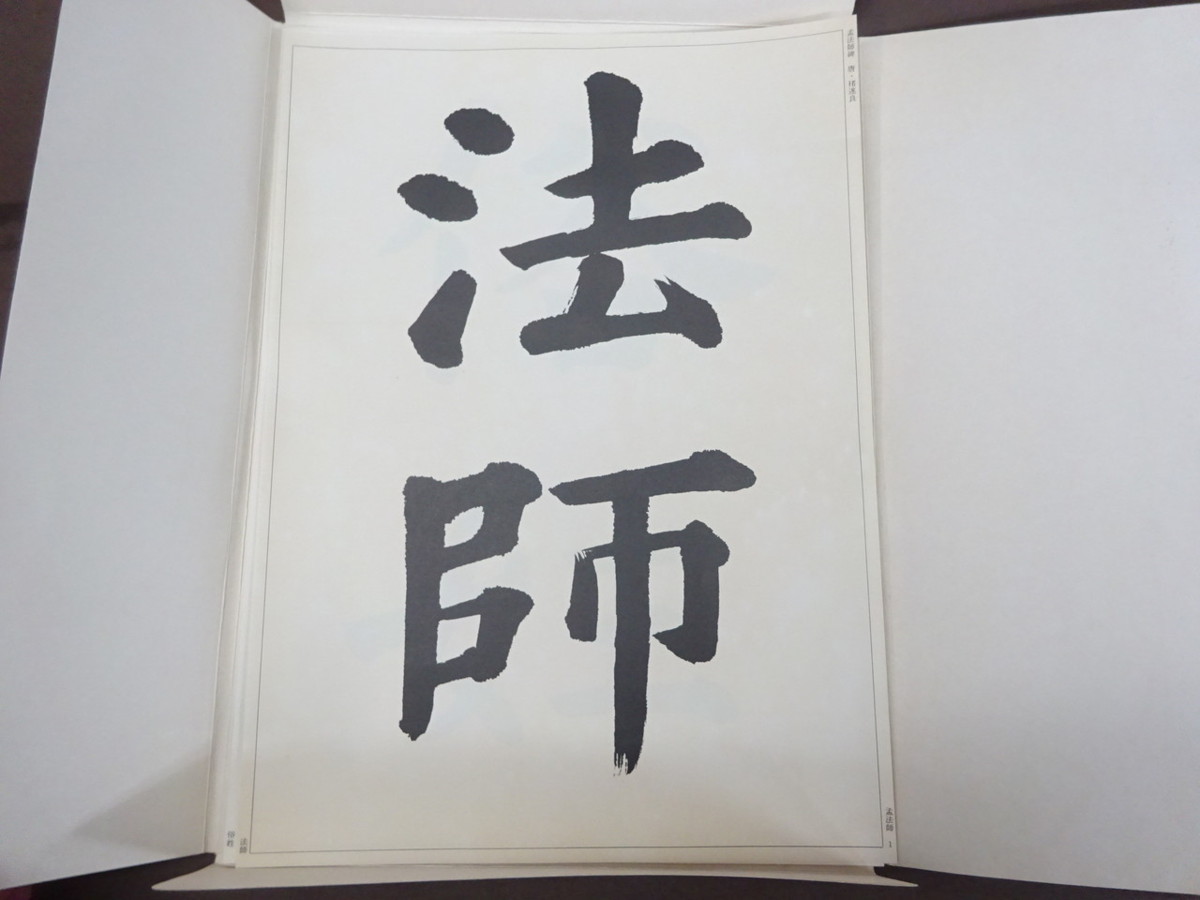 孟法師碑 唐・褚遂良
法
師
孟法師 1
法師